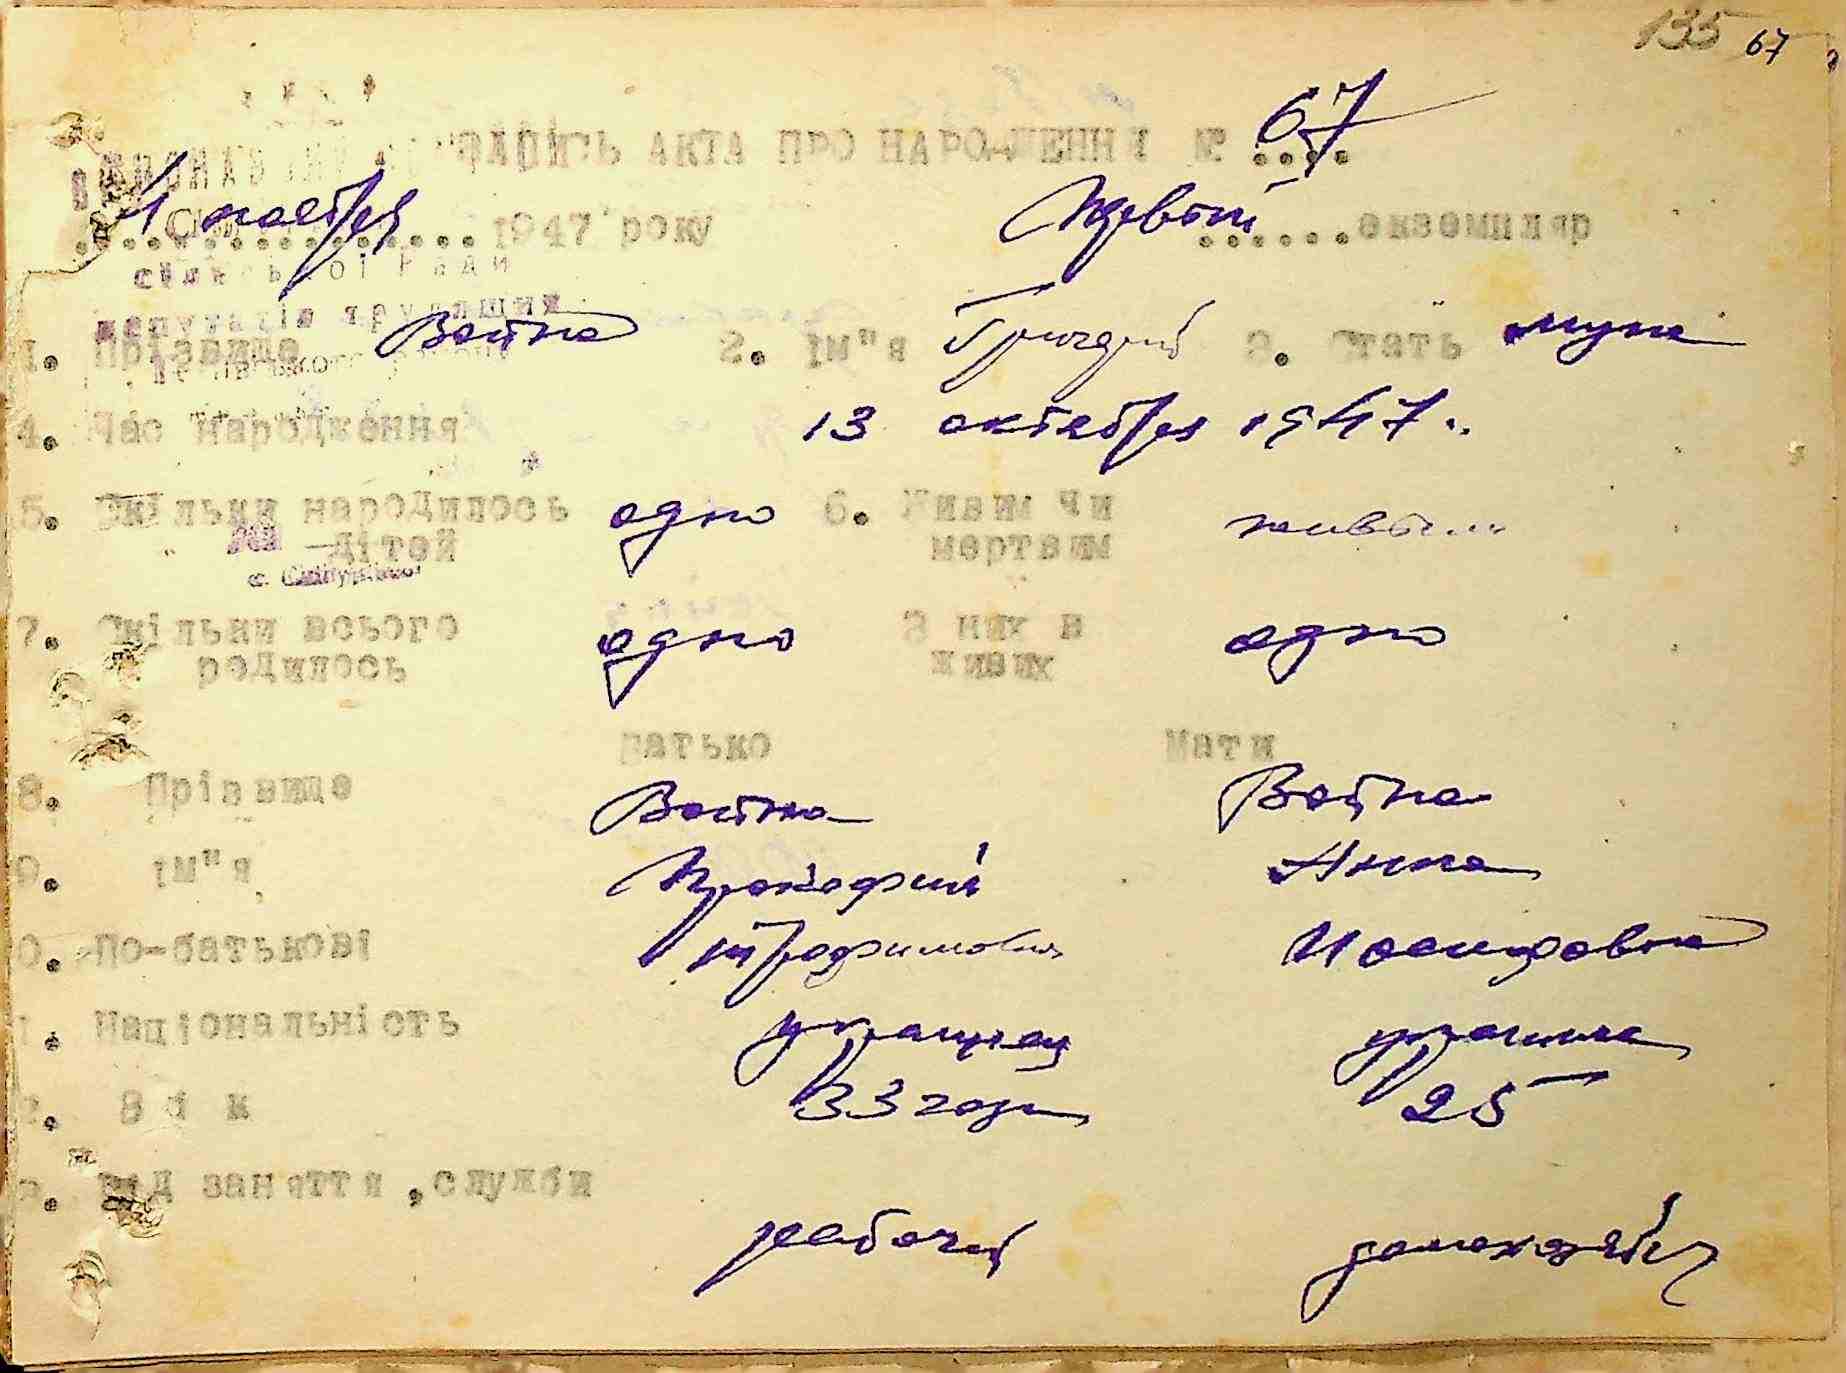 135 67
ЗАПИСЬ АКТА ПРО НАРОДЖЕННЯ № 67
1947 року Первый екземпляр
сільської Ради
депутатів трудящих
1. Прізвище Война 2. Ім"я Григорий 3. Стать муж
4. Час народження 13 октября 1947 г.
5. Скільки народилось одно 6. Живим чи живым
дітей мертвим
7. Скільки всього одно З них в одно
родилось живих
Батько Мати
8. Прізвище Война Война
9. ім"я Прокофий Анна
0. По-батькові Трофимович Иосифовна
1. Національність украинец
2. Вік 33 года 25
Рід заняття, служби
рабочий домохоз